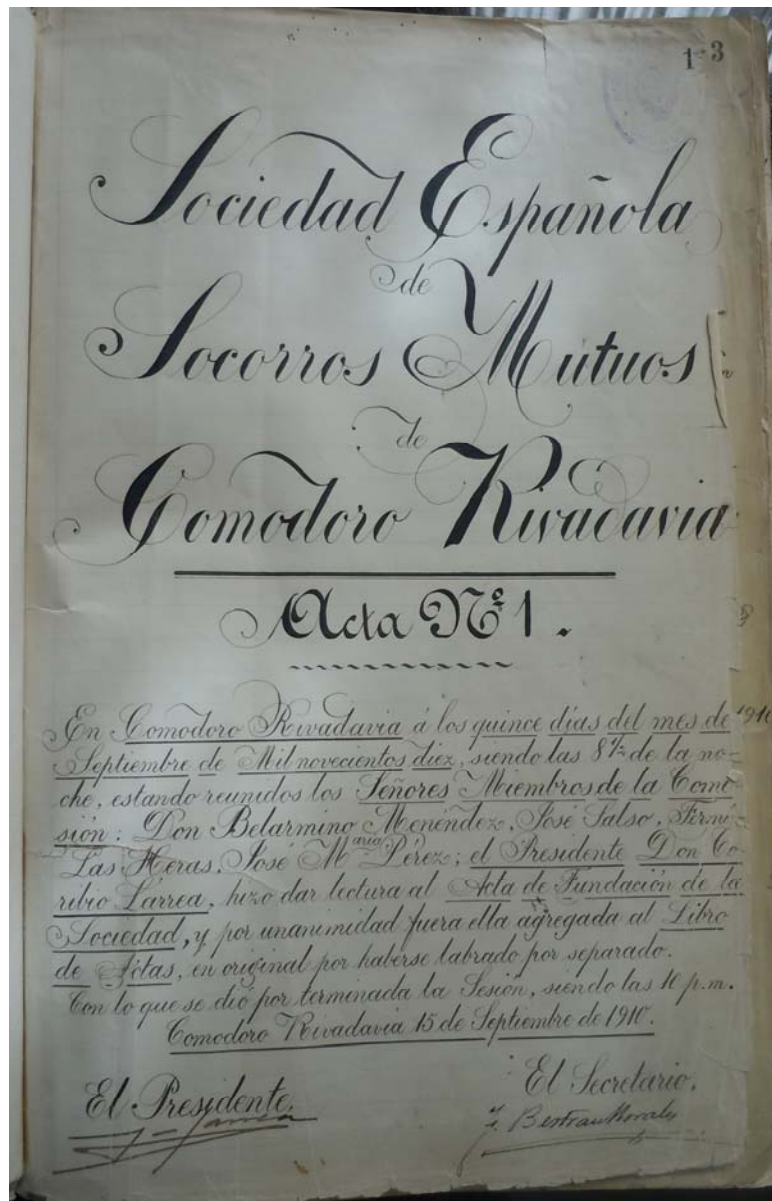 1-3
Sociedad Española
de
Socorros Mútuos
de
Comodoro Rivadavia
Acta Nº 1.
En Comodoro Rivadavia á los quince días del mes de 1910
Septiembre de Mil novecientos diez, siendo las 8½ de la no-
che, estando reunidos los Señores Miembros de la Comi-
sión: Don Belarmino Menéndez, José Salso, Fermín
Las Heras, José Mᵃʳⁱᵃ Pérez; el Presidente Don To-
ribio Larrea, hizo dar lectura al Acta de Fundación de la
Sociedad, y por unanimidad fuera ella agregada al Libro
de Actas, en original por haberse labrado por separado.
Con lo que se dió por terminada la Sesión, siendo las 10 p.m.
Comodoro Rivadavia 15 de Septiembre de 1910.
El Presidente.
El Secretario.
J. Bertran Morales